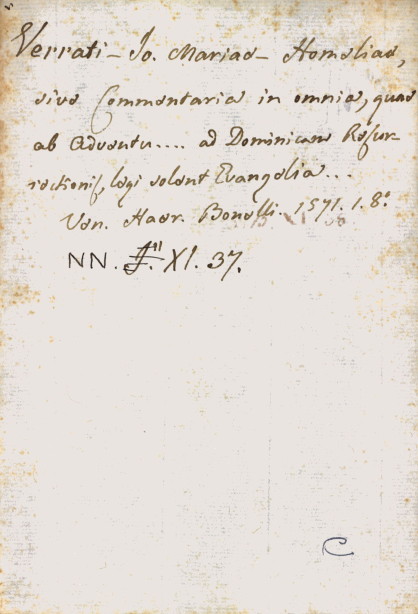 Verrati - Jo. Mariae - Homeliae,
sive Commentaria in omnia, quae
ab Adventu.... ad Dominicam Resur-
rectionis, legi solent Evangelia...
Ven. Haer. Bonelli. 1571. 1. 8.º
NN. XI. 37.
C